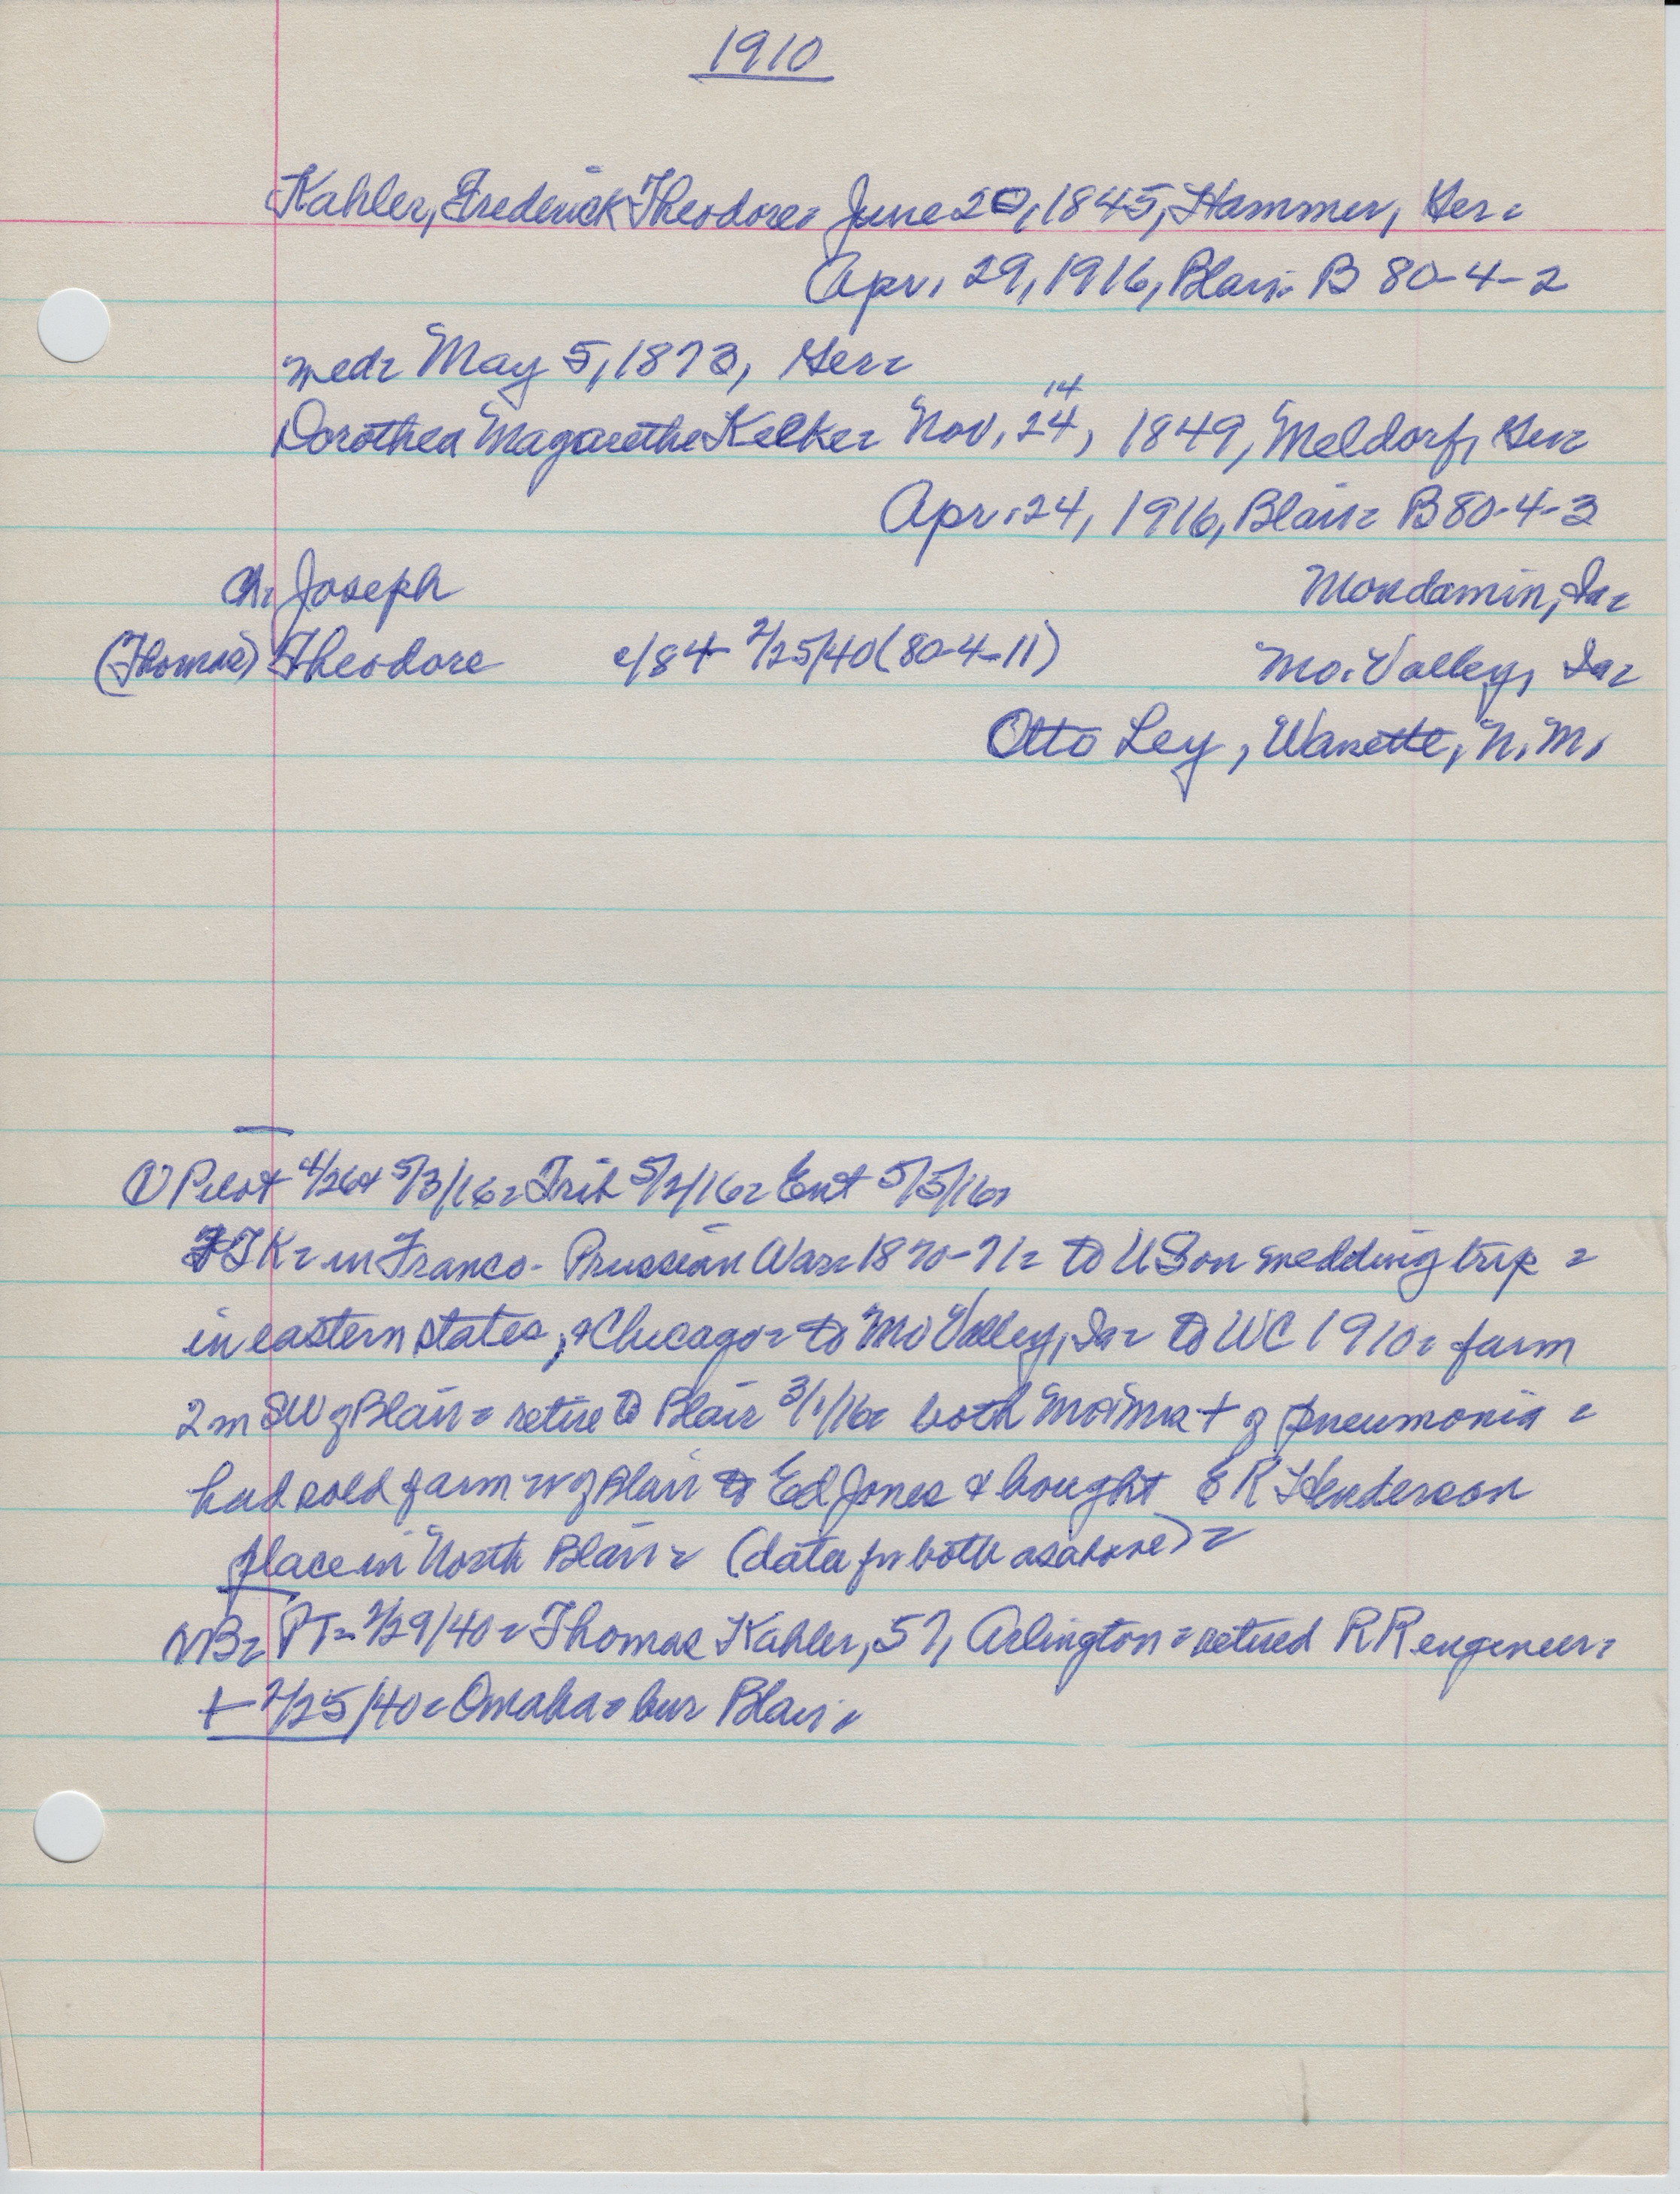 1910
Kahler, Frederick Theodore= June 20, 1845, Hammer, Ger=
Apr. 29, 1916, Blair= B 80-4-2
med= May 5, 1873, Ger=
14
Dorothea Magarethe Kelker= Nov. 24, 1849, Meldorf, Ger=
Apr. 24, 1916, Blair= B 80-4-3
Ch. Joseph Mondamin, Ia=
(Thomas) Theodore c/84 2/25/40 (80-4-11) Mo. Valley, Ia=
Otto Ley, Wanette, N. M.
(1) Pilot 4/26+ 5/3/16= Trib 5/2/16= Ent 5/5/16=
FTK= in Franco-Prussian War= 1870-71= to US on wedding trip =
in eastern states, & Chicago= to Mo Valley, Ia= to WC 1910= farm
2 m SW of Blair= retire to Blair 3/1/16= both Mr & Mrs + of pneumonia =
had sold farm W of Blair to Ed Jones & bought E R Henderson
place in North Blair= (data for both as above)=
NB= PT= 2/29/40= Thomas Kahler, 57, Arlington= retired RR engineer=
+ 2/25/40= Omaha= bur Blair=